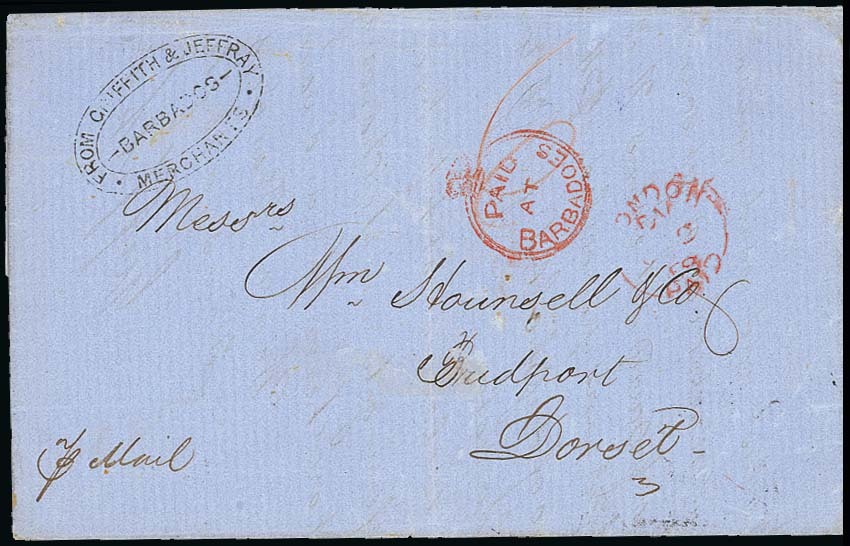 FROM GRIFFITH & JEFFRAY
-BARBADOS-
MERCHANTS
6
PAID
AT
BARBADOES
LONDON
PAID
Messrs
Wm Hounsell & Co
Bridport
Dorset
p Mail